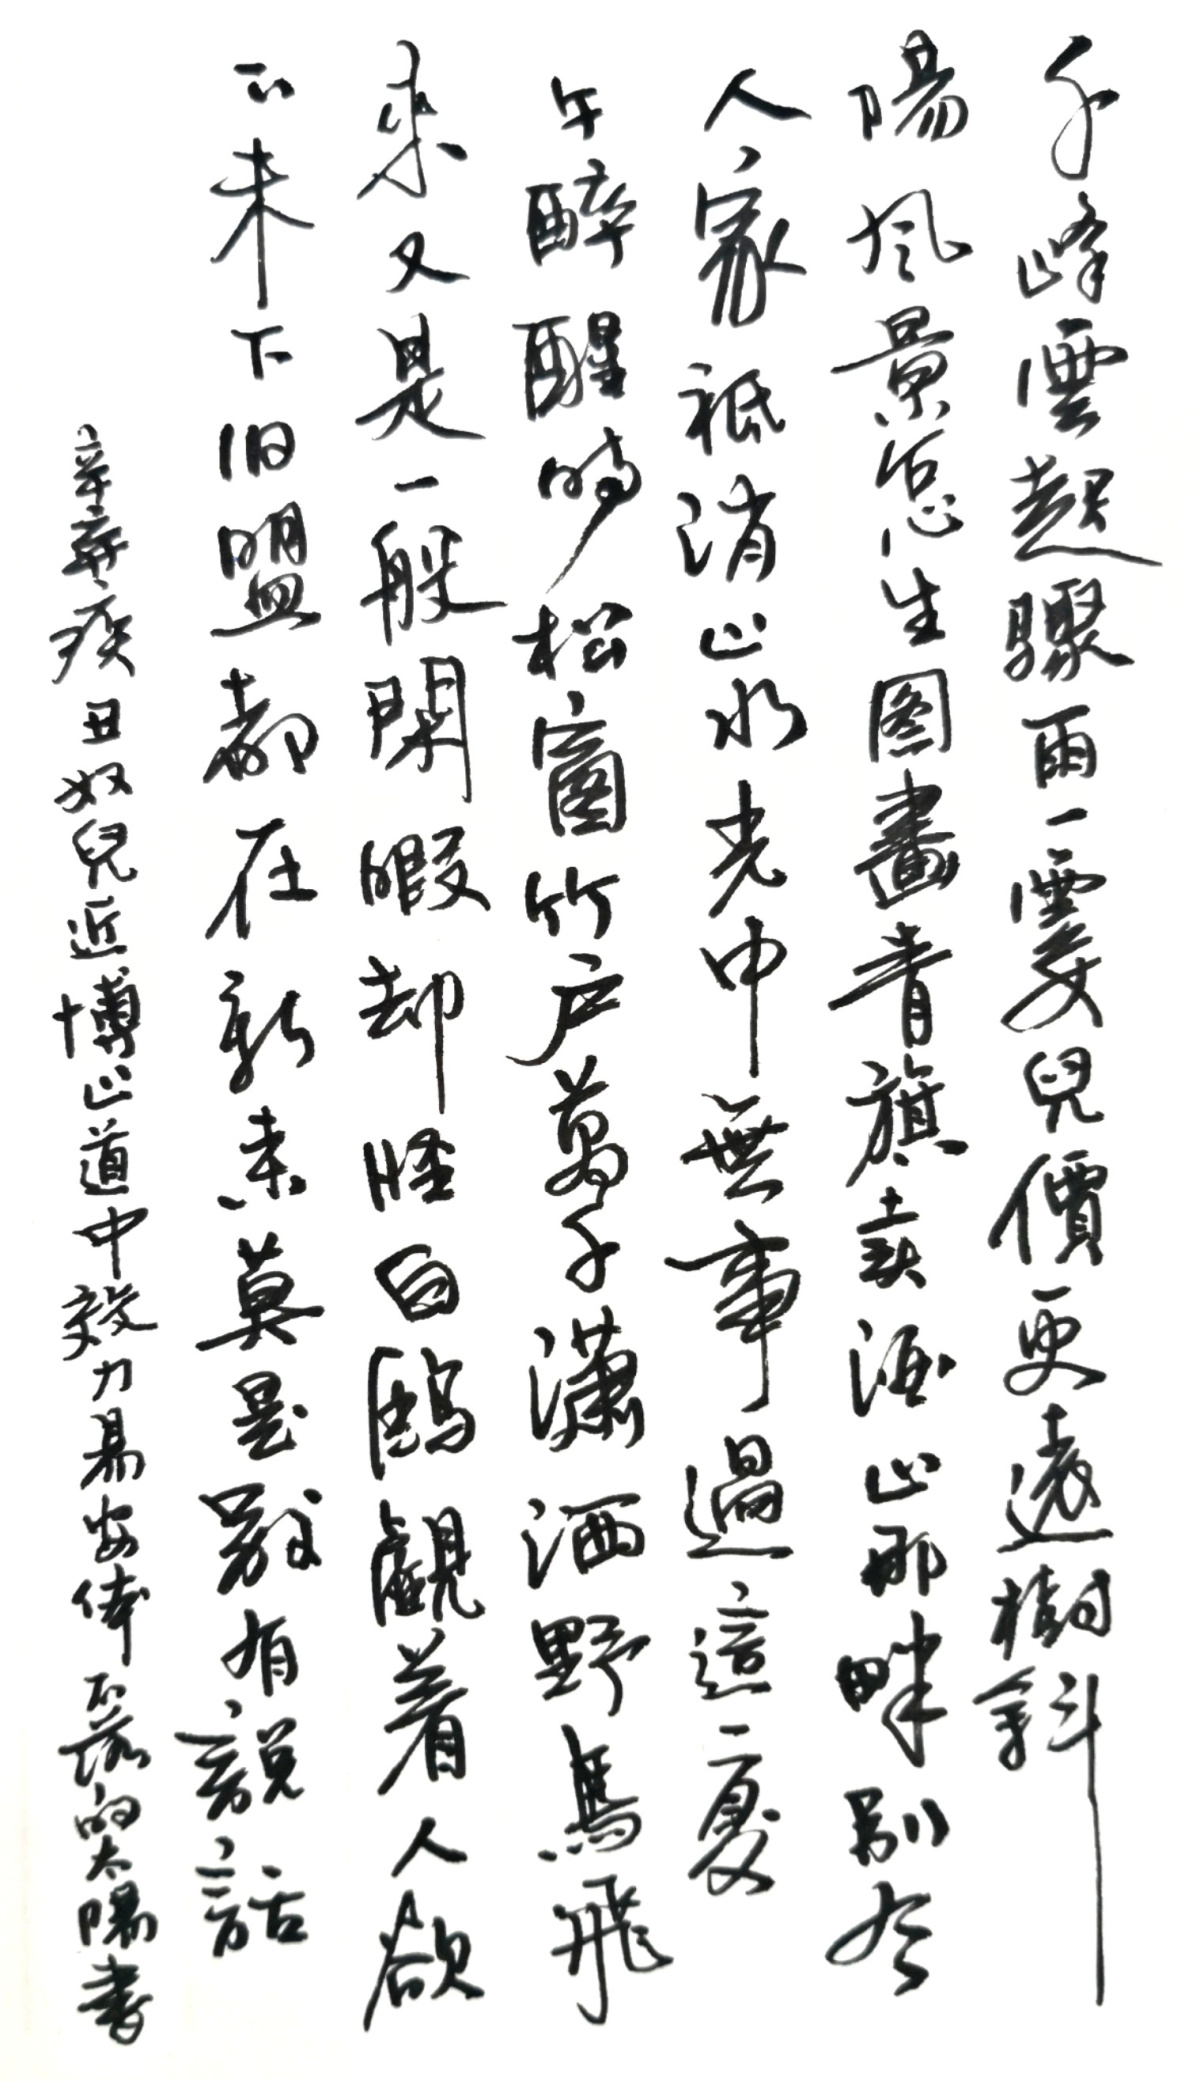 千峰雲起驟雨一霎兒價更遠樹斜
陽風景怎生图畫青旗卖酒山那畔别有
人家祗消山水光中無事過這一夏
午醉醒時松窗竹户萬千瀟洒野鳥飛
來又是一般閑暇却怪白鷗觀着人欲
下未下旧盟都在新来莫是别有説話
辛棄疾丑奴兒近博山道中效力易安体 的太陽書